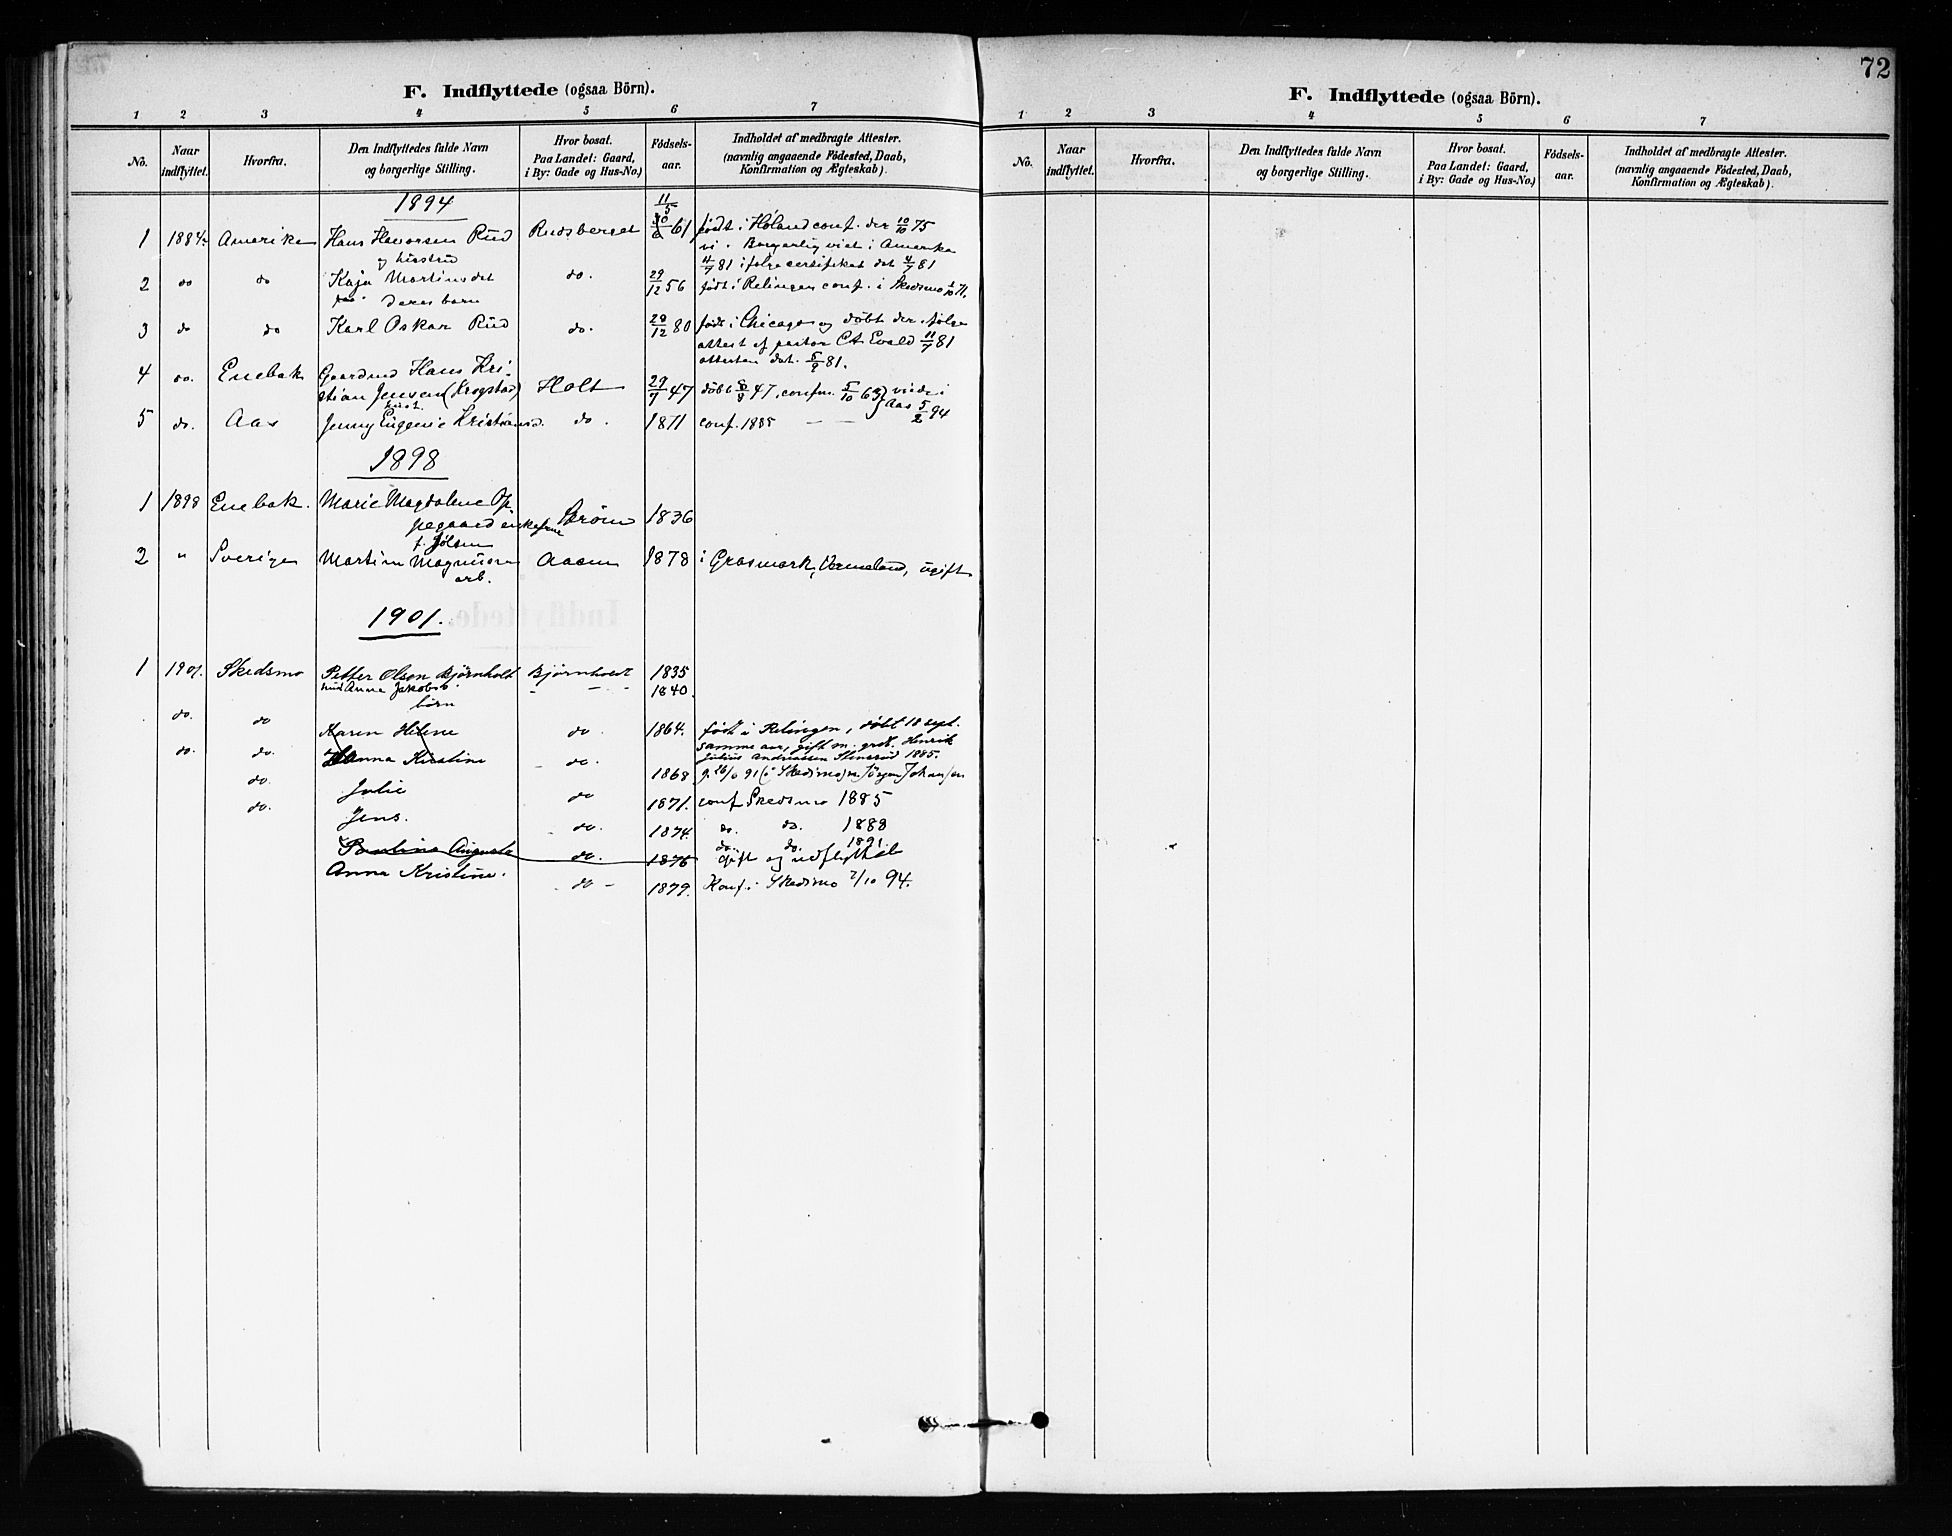 72
F. Indflyttede (ogsaa Börn).
1 2 3 4 5 6 7
No. Naar indflyttet. Hvorfra. Den Indflyttedes fulde Navn og borgerlige Stilling. Hvor bosat. Paa Landet: Gaard, i By: Gade og Hus-No.) Födsels-aar. Indholdet af medbragte Attester. (navnlig angaaende Födested, Daab, Konfirmation og Ægteskab).
1894
11/5
1 1884 Amerika Hans Havorsen Rud Rudsberget 61 födt i Höland conf. der 10/10 75
og hustru vi. Borgerlig viet i Amerika
4/7 81 ifölge certifikat dat 4/7 81
2 do do Kaja Martinsdat do. 29/12 56 födt i Relingen conf. i Skedsmo 71.
deres barn
3 do do Karl Oskar Rud do. 29/12 80 födt i Chicago og döbt der ifölge
attest af pastor CA Evald 11/7 81
attesten dat. 5/9 81.
4 do. Enebak Gaardmd Hans Kri-
stian Jensen (Krogstad) Holt 29/7 47 döbt 47, confm. 5/10 63 viede i
Aas 5/2 94
5 do. Aas Jenny Eugenie Kristiansd. do. 1871 conf. 1885 — —
1898
1 1898 Enebak. Marie Magdalene Op
pegaard enkefrue Ström 1836
f. Jölsen
2 " Sverige Martin Magnusen Aasen 1878 i Grasmark, Vermeland, ugift
arb.
1901.
1 1901. Skedsmo Petter Olsen Björnholt Björnholt 1835
Anna Jakobsd. — — 1840.
börn
do. do Karen Helene do 1864. födt i Relingen, döbt 18 sept.
samme aar, gift m. grdk. Henrik
Julius Andreassen Stensrud 1885.
do. do. Hanna Kirstine do. 1868 g. 26/ 91 (i Skedsmo) m. Jörgen Johansen
do. Julie do 1871. conf Skedsmo 1885
do. Jens. do. 1874. do. do. 1888
do. do. 1891
Pauline Augusta do. 1876 gift og udflyttet
Anna Kristine. do — 1879. Konf. i Skedsmo 2/10 94.
F. Indflyttede (ogsaa Börn).
1 2 3 4 5 6 7
No. Naar indflyttet. Hvorfra. Den Indflyttedes fulde Navn og borgerlige Stilling. Hvor bosat. Paa Landet: Gaard, i By: Gade og Hus-No.) Födsels-aar. Indholdet af medbragte Attester. (navnlig angaaende Födested, Daab, Konfirmation og Ægteskab).